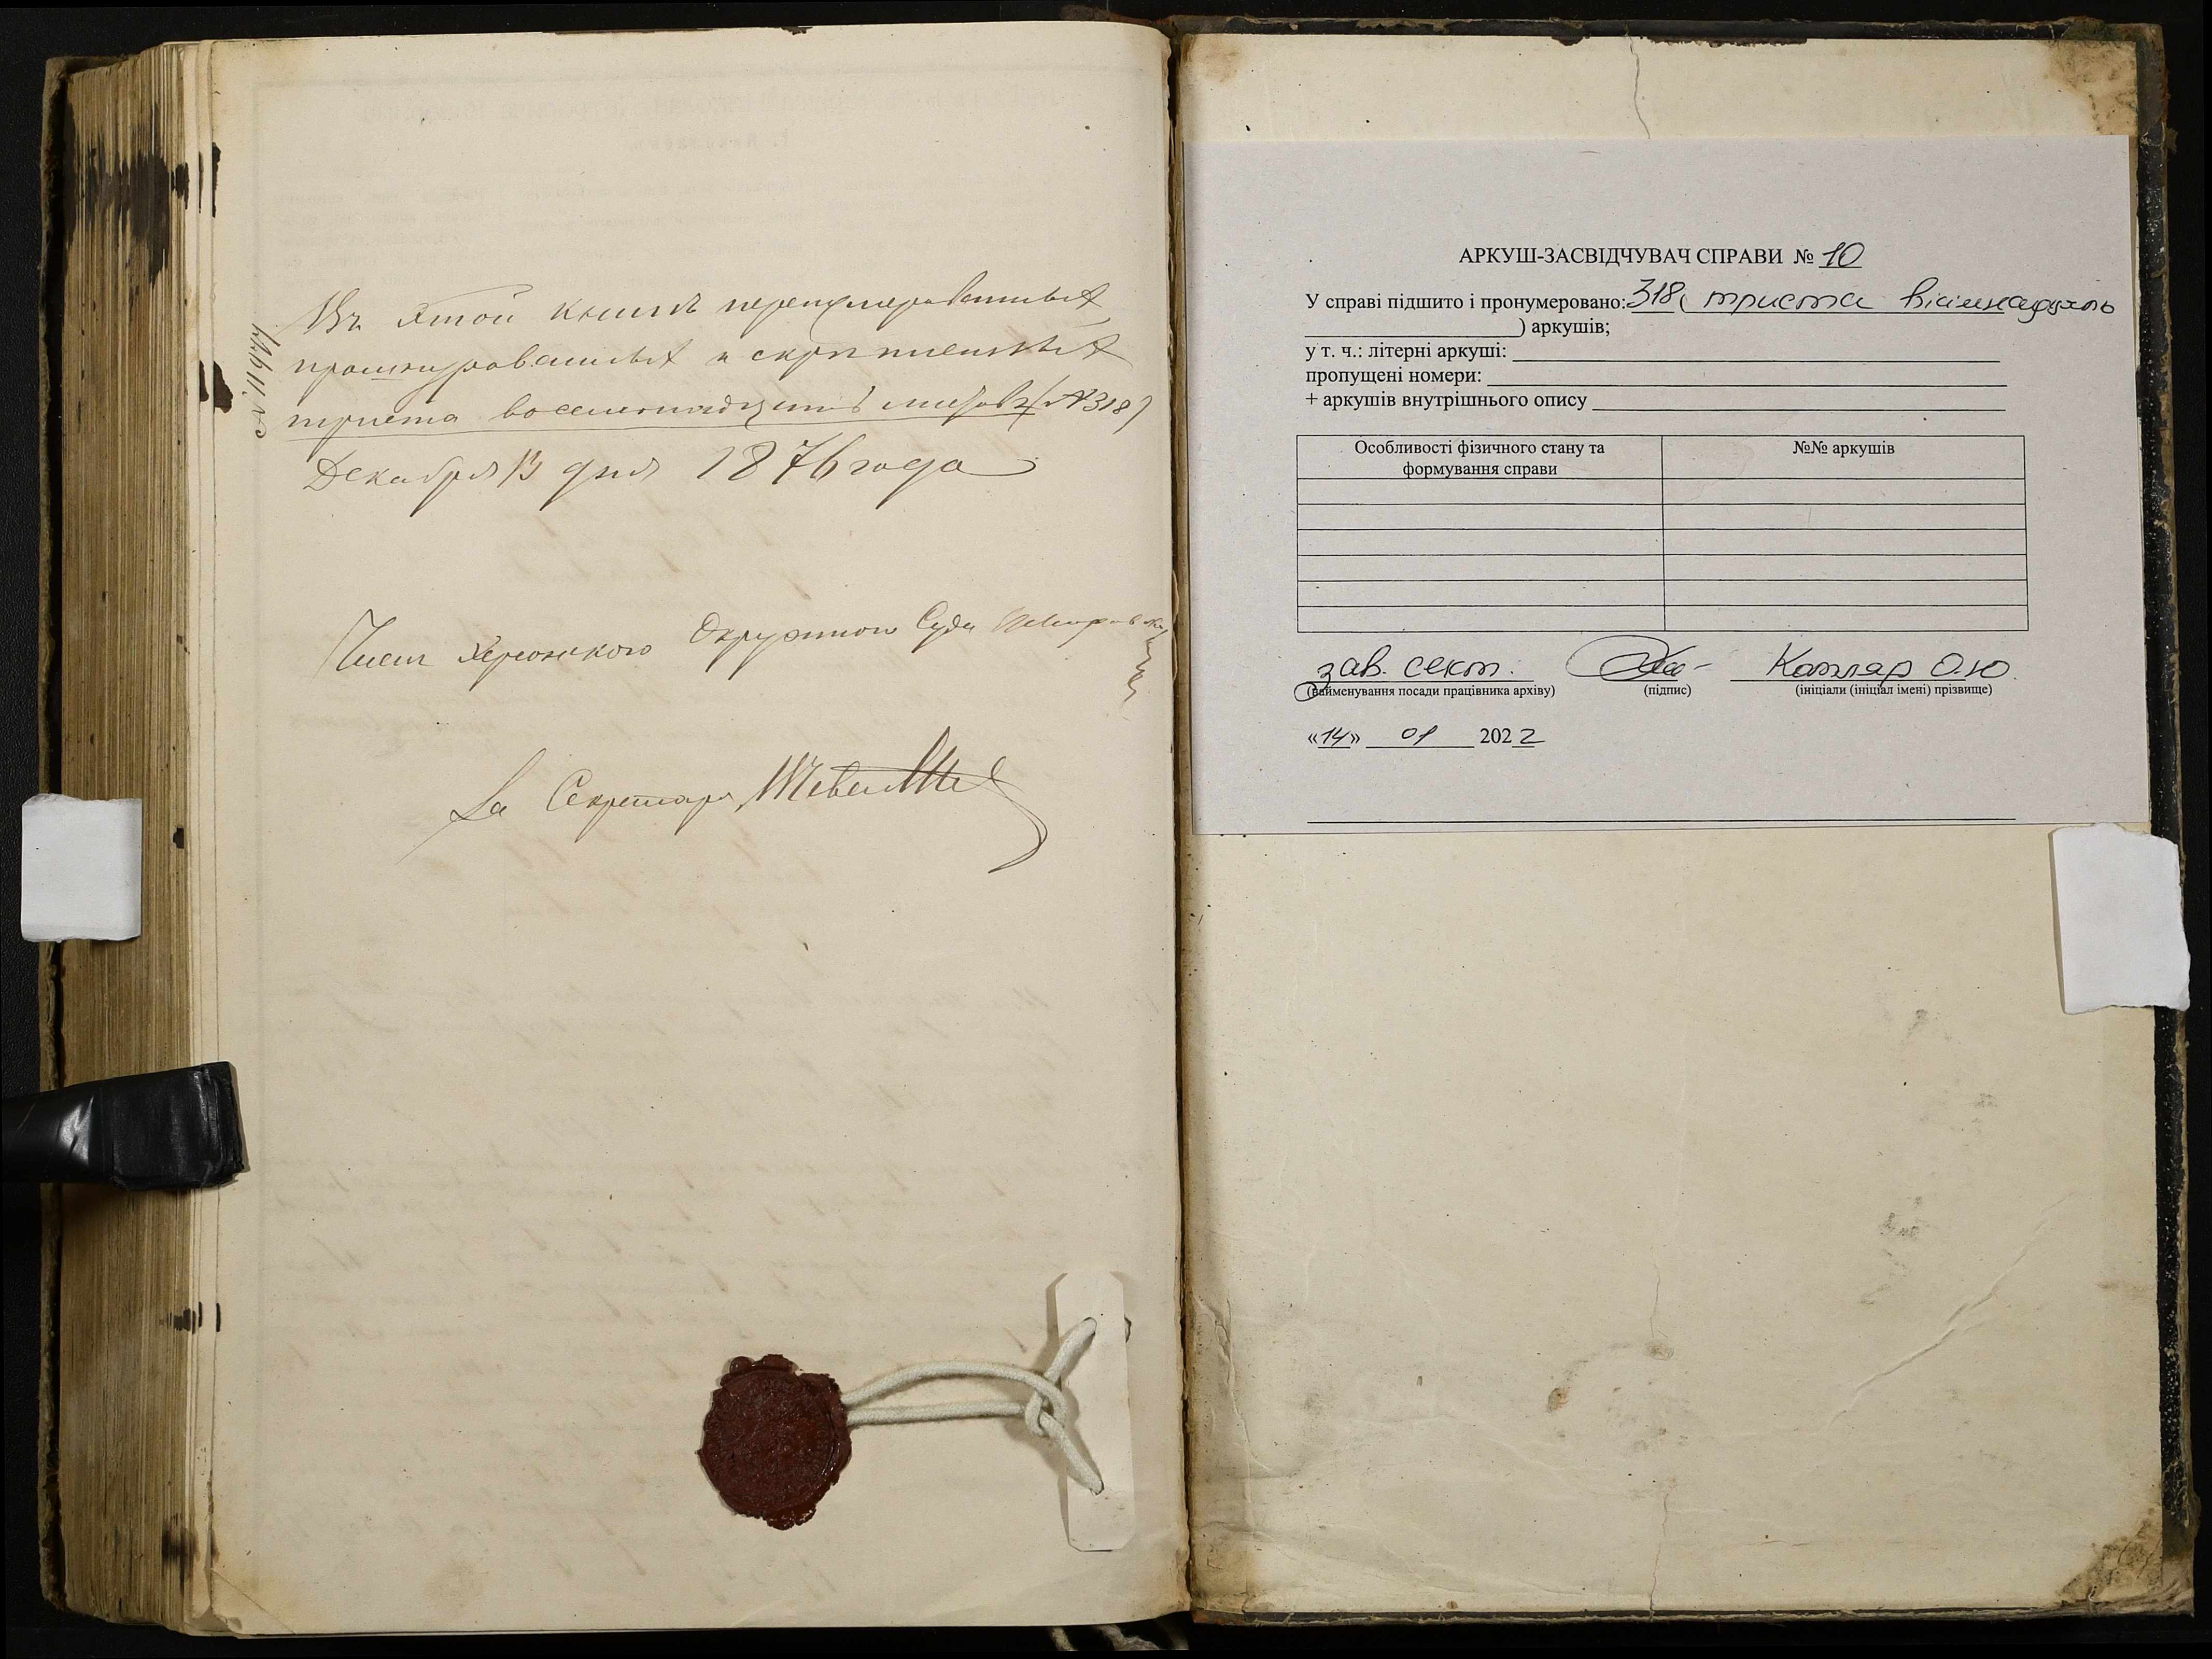 Въ этой книгѣ перенумерованныхъ,
прошнурованныхъ и скрѣпленныхъ
триста восемнадцать листовъ (№318)
Декабря 13 дня 1876 года
Членъ Херсонскаго Окружнаго Суда
За Секретаря
АРКУШ-ЗАСВІДЧУВАЧ СПРАВИ № 10
У справі підшито і пронумеровано: 318 ( триста вісімнадцять
) аркушів;
у т. ч.: літерні аркуші:
пропущені номери:
+ аркушів внутрішнього опису
Особливості фізичного стану та формування справи
№№ аркушів
зав. сект. Капляр О.Ю.
(найменування посади працівника архіву) (підпис) (ініціали (ініціал імені) прізвище)
«14» 01 2022